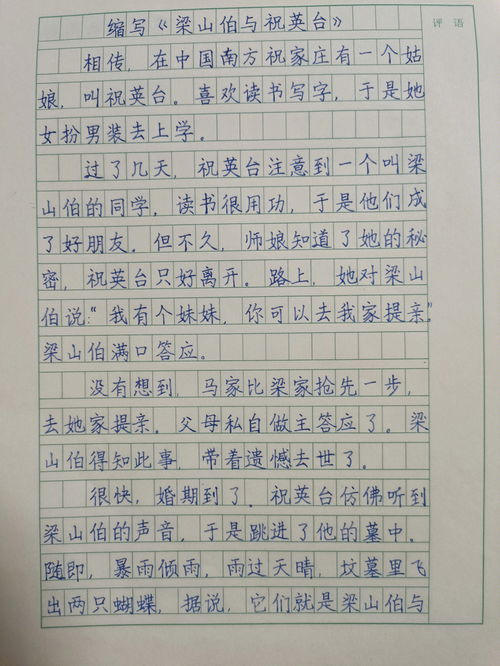 缩写《梁山伯与祝英台》
评语
相传，在中国南方祝家庄有一个姑
娘，叫祝英台。喜欢读书写字，于是她
女扮男装去上学。
过了几天，祝英台注意到一个叫梁
山伯的同学，读书很用功，于是他们成
了好朋友。但不久，师娘知道了她的秘
密，祝英台只好离开。路上，她对梁山
伯说：“我有个妹妹，你可以去我家提亲。”
梁山伯满口答应。
没有想到，马家比梁家抢先一步，
去她家提亲。父母私自做主答应了。梁
山伯得知此事，带着遗憾去世了。
很快，婚期到了。祝英台仿佛听到
梁山伯的声音，于是跳进了他的墓中。
随即，暴雨倾雨，雨过天晴，坟墓里飞
出两只蝴蝶，据说，它们就是梁山伯与